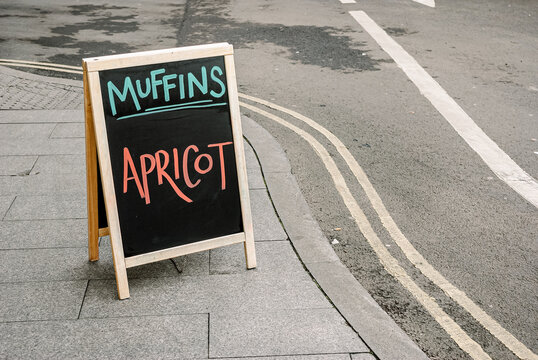 MUFFINS
APRICOT